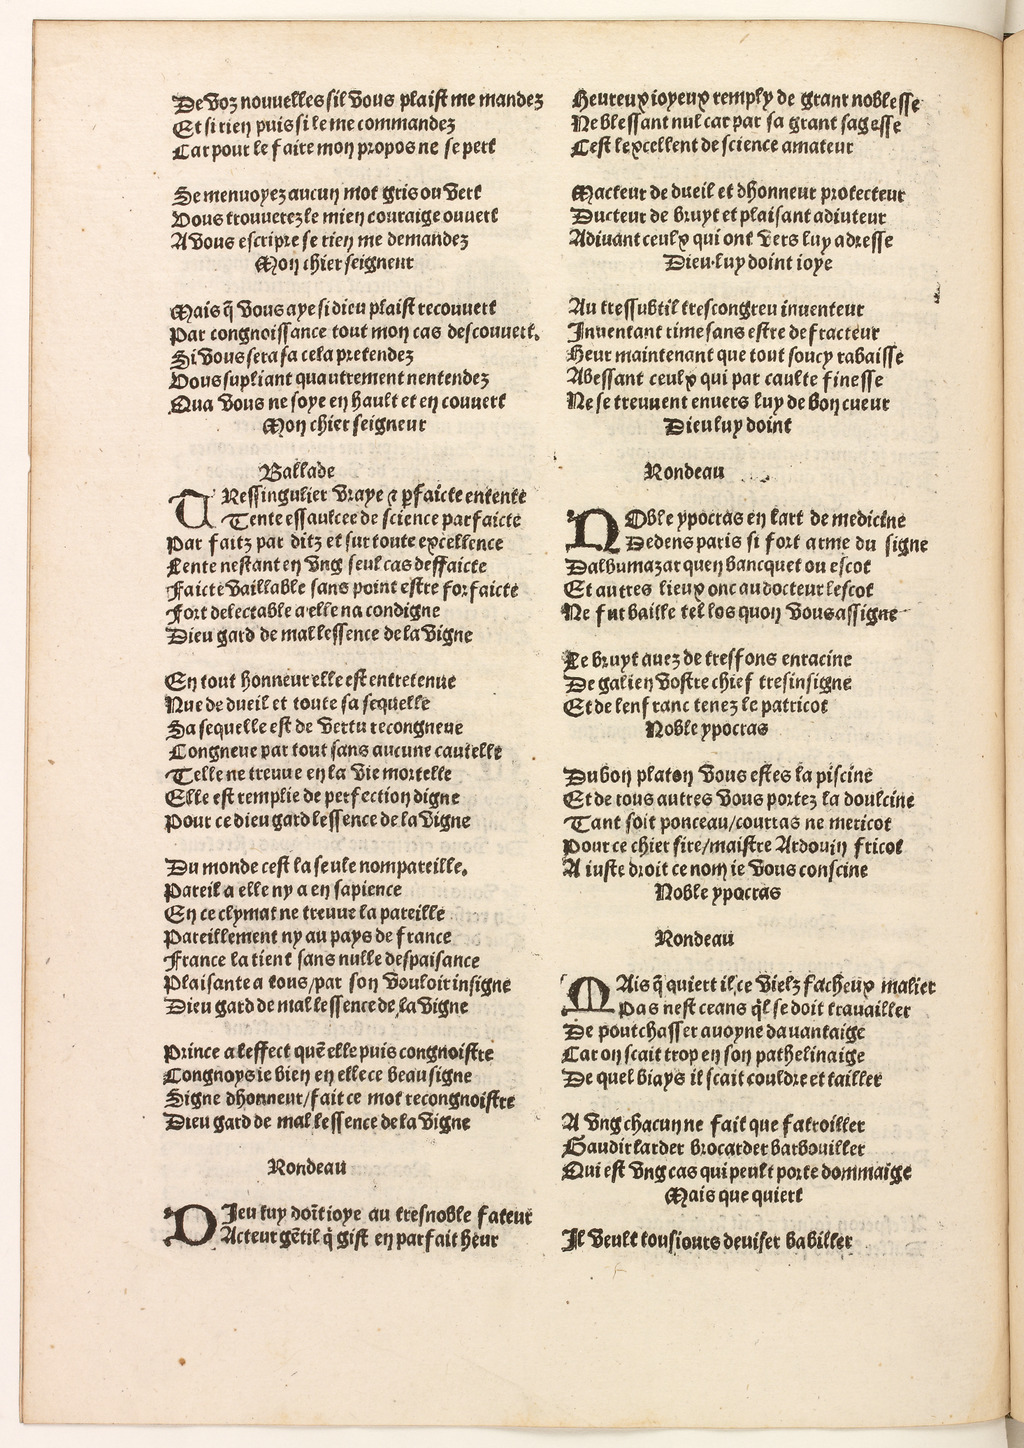 De voz nouuelles sil vous plaist me mandez
Et si rien puis si le me commandez
Car pour le faire mon propos ne se pert
Se menuoyez aucun mot gris ou vert
Vous trouuerez le mien couraige ouuert
A vous escripre se rien me demandez
Mon chier seigneur
Mais q̃ vous aye si dieu plaist recouuert
Par congnoissance tout mon cas descouuert.
Si vous sera sa cela pretendez
Vous supliant quautrement nentendez
Qua vous ne soye en hault et en couuert
Mon chier seigneur
Ballade
TRessingulier vraye ⁊ ꝑfaicte entente
Tente essaulcee de science parfaicte
Par faitz par ditz et sur toute excellence
Lente nestant en vng seul cas deffaicte
Faicte vaillable sans point estre forfaicte
Fort delectable a elle na condigne
Dieu gard de mal lessence de la vigne
En tout honneur elle est entretenue
Nue de dueil et toute sa sequelle
Sa sequelle est de vertu recongneue
Congneue par tout sans aucune cautelle
Telle ne treuue en la vie mortelle
Elle est remplie de perfection digne
Pour ce dieu gard lessence de la vigne
Du monde cest la seule nompareille.
Pareil a elle ny a en sapience
En ce clymat ne treuue la pareille
Pareillement ny au pays de france
France la tient sans nulle despaisance
Plaisante a tous/par son vouloir insigne
Dieu gard de mal lessence de la vigne
Prince a leffect quẽ elle puis congnoistre
Congnoys ie bien en elle ce beau signe
Signe dhonneur/fait ce mot recongnoistre
Dieu gard de mal lessence de la vigne
Rondeau
DIeu luy doĩt ioye au tresnoble fateur
Acteur gẽtil q̃ gist en parfait heur
Heureux ioyeux remply de grant noblesse
Ne blessant nul car par sa grant sagesse
Cest lexcellent de science amateur
Macteur de dueil et dhonneur protecteur
Ducteur de bruyt et plaisant adiuteur
Adiuant ceulx qui ont vers luy adresse
Dieu luy doint ioye
Au tressubtil trescongreu inuenteur
Inuentant rime sans estre defracteur
Heur maintenant que tout soucy rabaisse
Abessant ceulx qui par caulte finesse
Ne se treuuent enuers luy de bon cueur
Dieu luy doint
Rondeau
NOble ypocras en lart de medicine
Dedens paris si fort arme du signe
Dalbumazar quen bancquet ou escot
Et autres lieux onc au docteur lescot
Ne fut baille tel los quon vous assigne
Le bruyt auez de tresfons enracine
De galien vostre chief tresinsigne
Et de lenfranc tenez le patricot
Noble ypocras
Du bon platon vous estes la piscine
Et de tous autres vous portez la doulcine
Tant soit ponceau/courras ne mericot
Pour ce chier sire/maistre Ardouin fricot
A iuste droit ce nom ie vous conscine
Noble ypocras
Rondeau
MAis q̃ quiert il/ce vielz facheux malier
Pas nest ceans q̃l se doit trauailler
De pourchasser auoyne dauantaige
Car on scait trop en son pathelinaige
De quel biays il scait couldre et tailler
A vng chacun ne fait que fatroiller
Gaudir larder brocarder barbouiller
Qui est vng cas qui peult porte dommaige
Mais que quiert
Il veult tousiours deuiser babiller